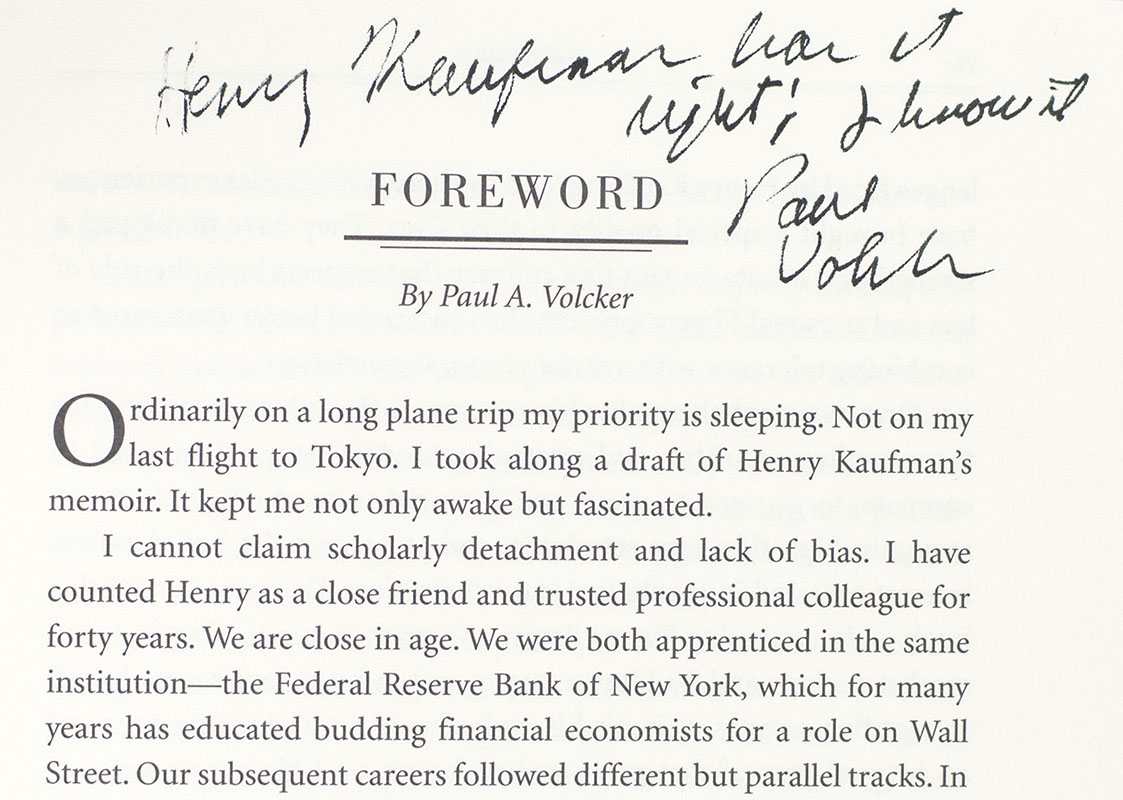 Henry Kaufman has it
right! I know it
Paul
Volcker
FOREWORD
By Paul A. Volcker
Ordinarily on a long plane trip my priority is sleeping. Not on my
last flight to Tokyo. I took along a draft of Henry Kaufman’s
memoir. It kept me not only awake but fascinated.
I cannot claim scholarly detachment and lack of bias. I have
counted Henry as a close friend and trusted professional colleague for
forty years. We are close in age. We were both apprenticed in the same
institution—the Federal Reserve Bank of New York, which for many
years has educated budding financial economists for a role on Wall
Street. Our subsequent careers followed different but parallel tracks. In